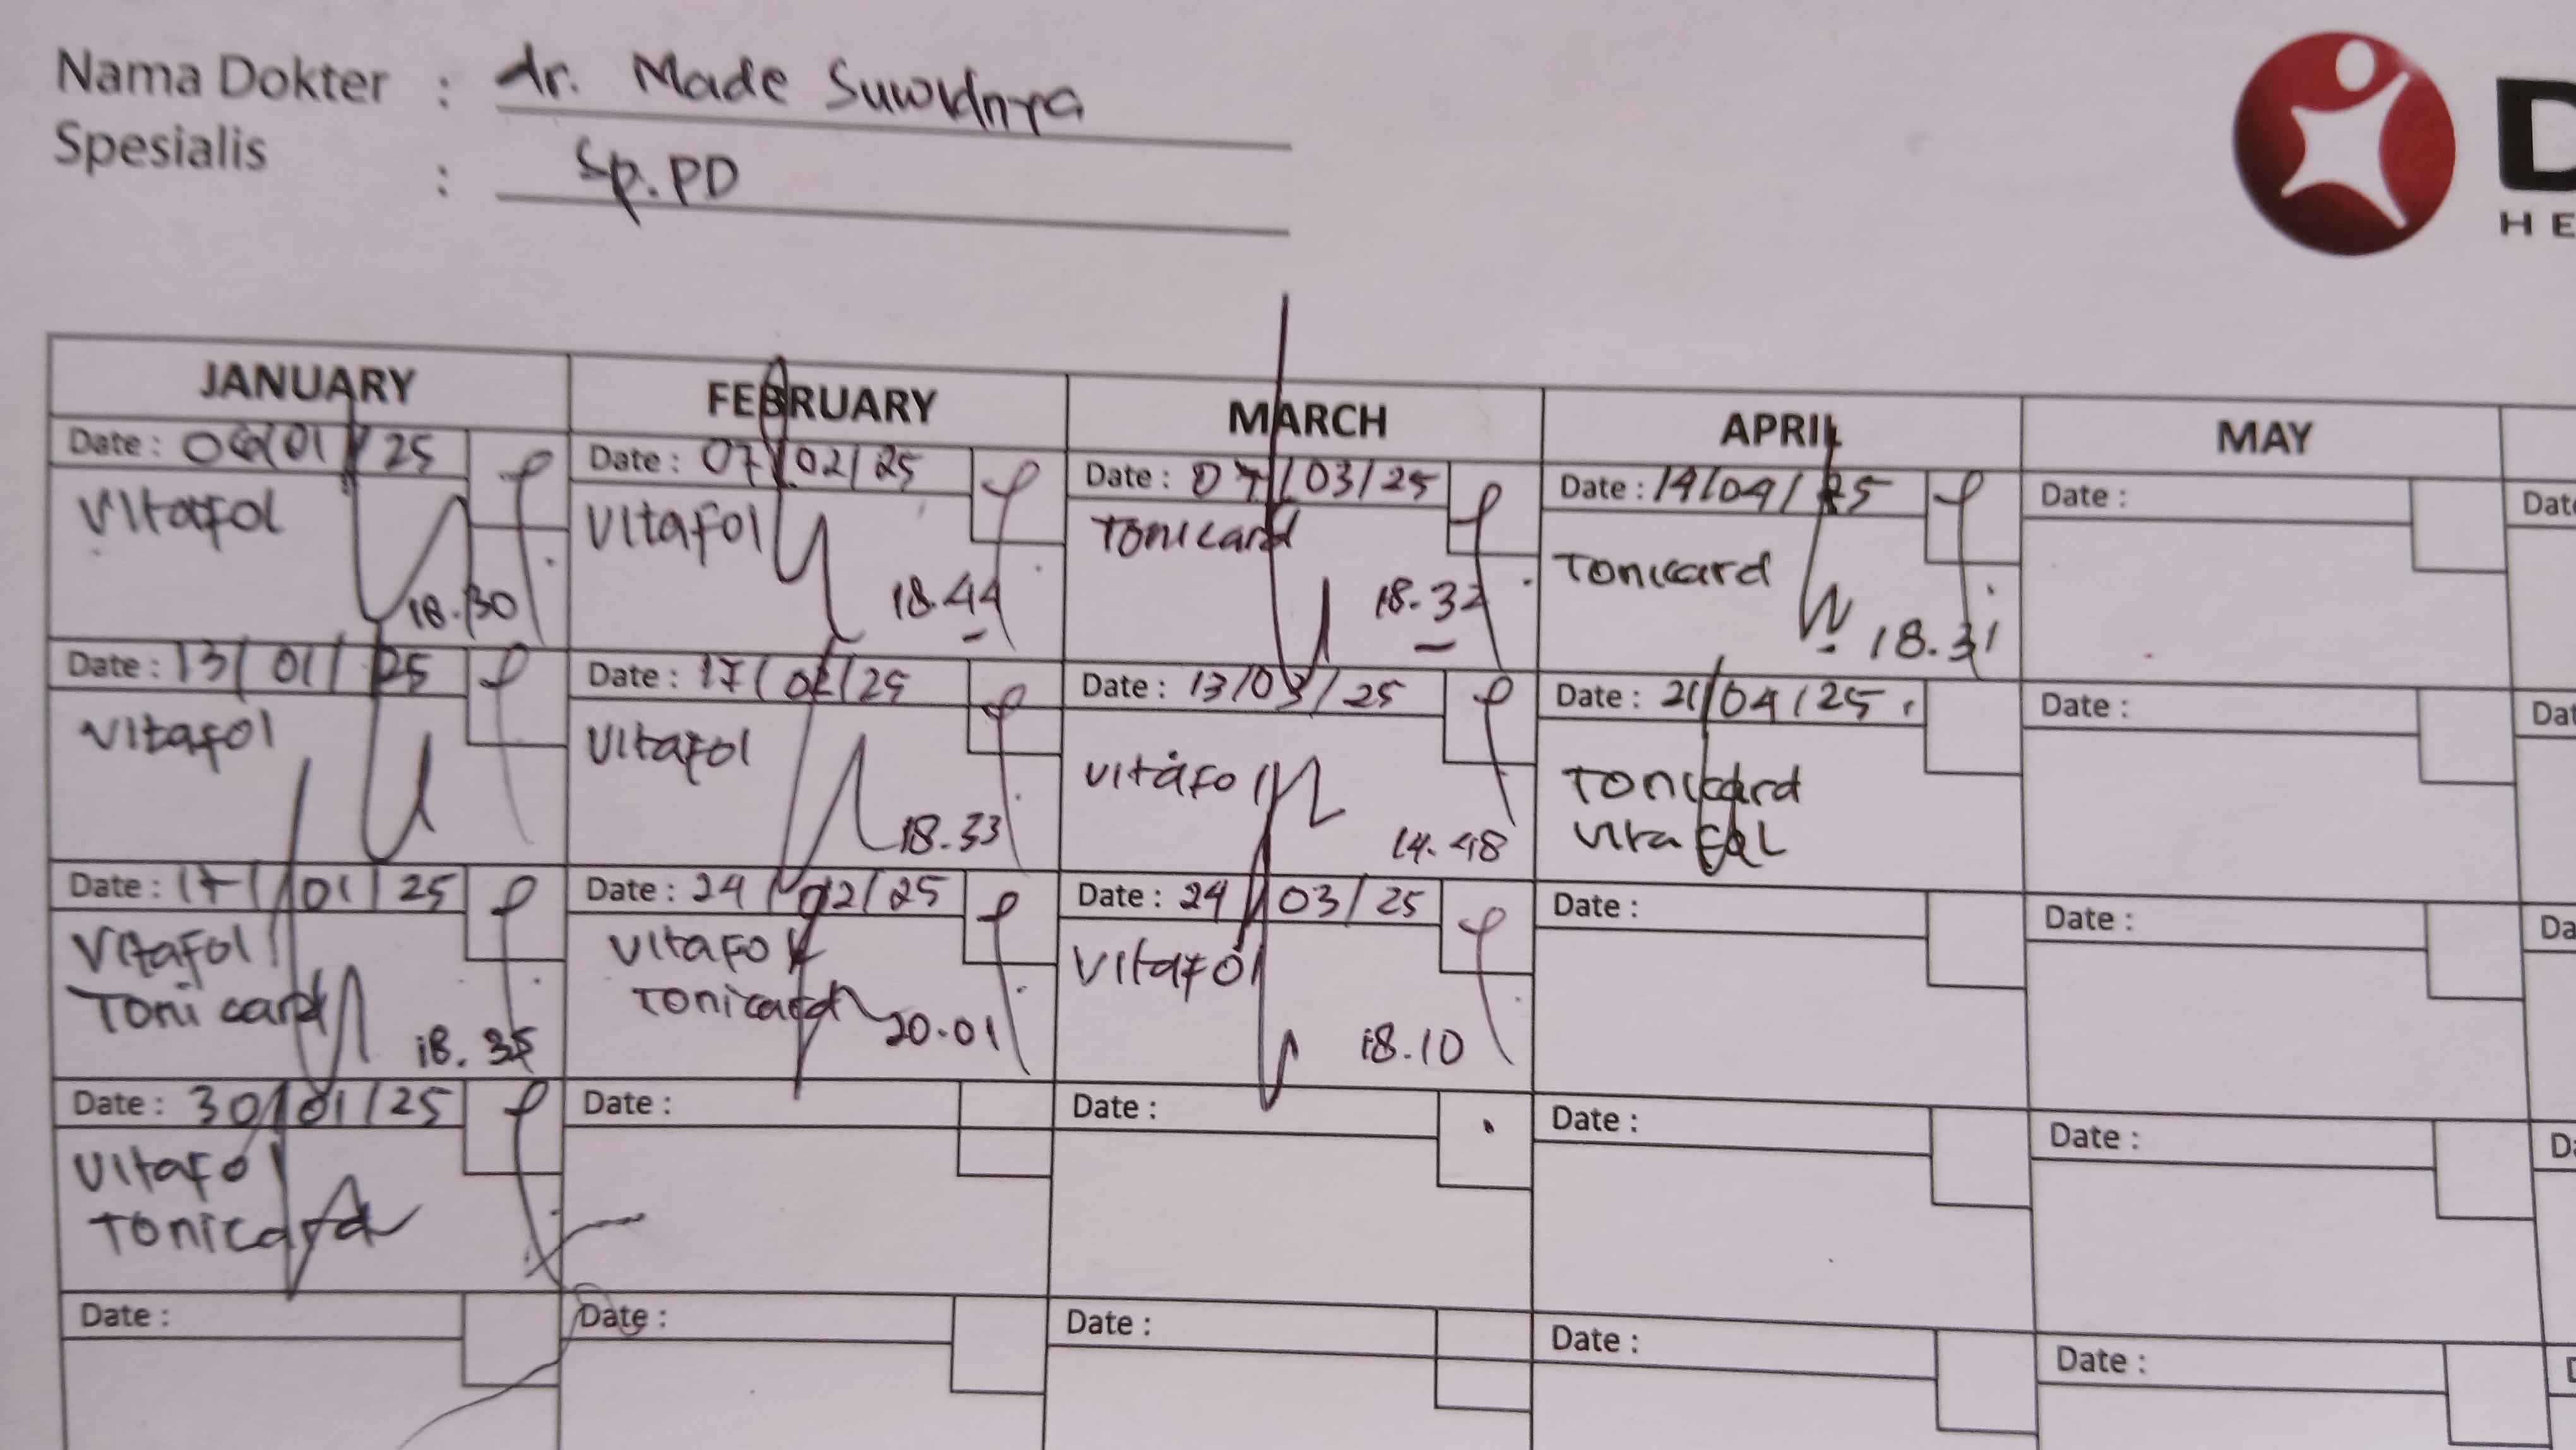 Nama Dokter : dr. Made Suwidnya
Spesialis : Sp.PD
D
HE
JANUARY FEBRUARY MARCH APRIL MAY
Date : 06/01/25 Date : 07/02/25 Date : 07/03/25 Date : 14/04/25 Date : Date
Vitafol Vitafol Tonicard Tonicard
18.30 18.44 18.32 18.31
Date : 13/01/25 Date : 17/02/25 Date : 13/03/25 Date : 21/04/25 Date : Dat
Vitafol Vitafol Vitafol Tonicard
18.33 14.48 Vitafol
Date : 17/01/25 Date : 24/02/25 Date : 24/03/25 Date : Date : Da
Vitafol Vitafol Vitafol
Tonicard Tonicard
18.35 20.01 18.10
Date : 30/01/25 Date : Date : Date : Date : Da
Vitafol
Tonicard
Date : Date : Date : Date : Date :